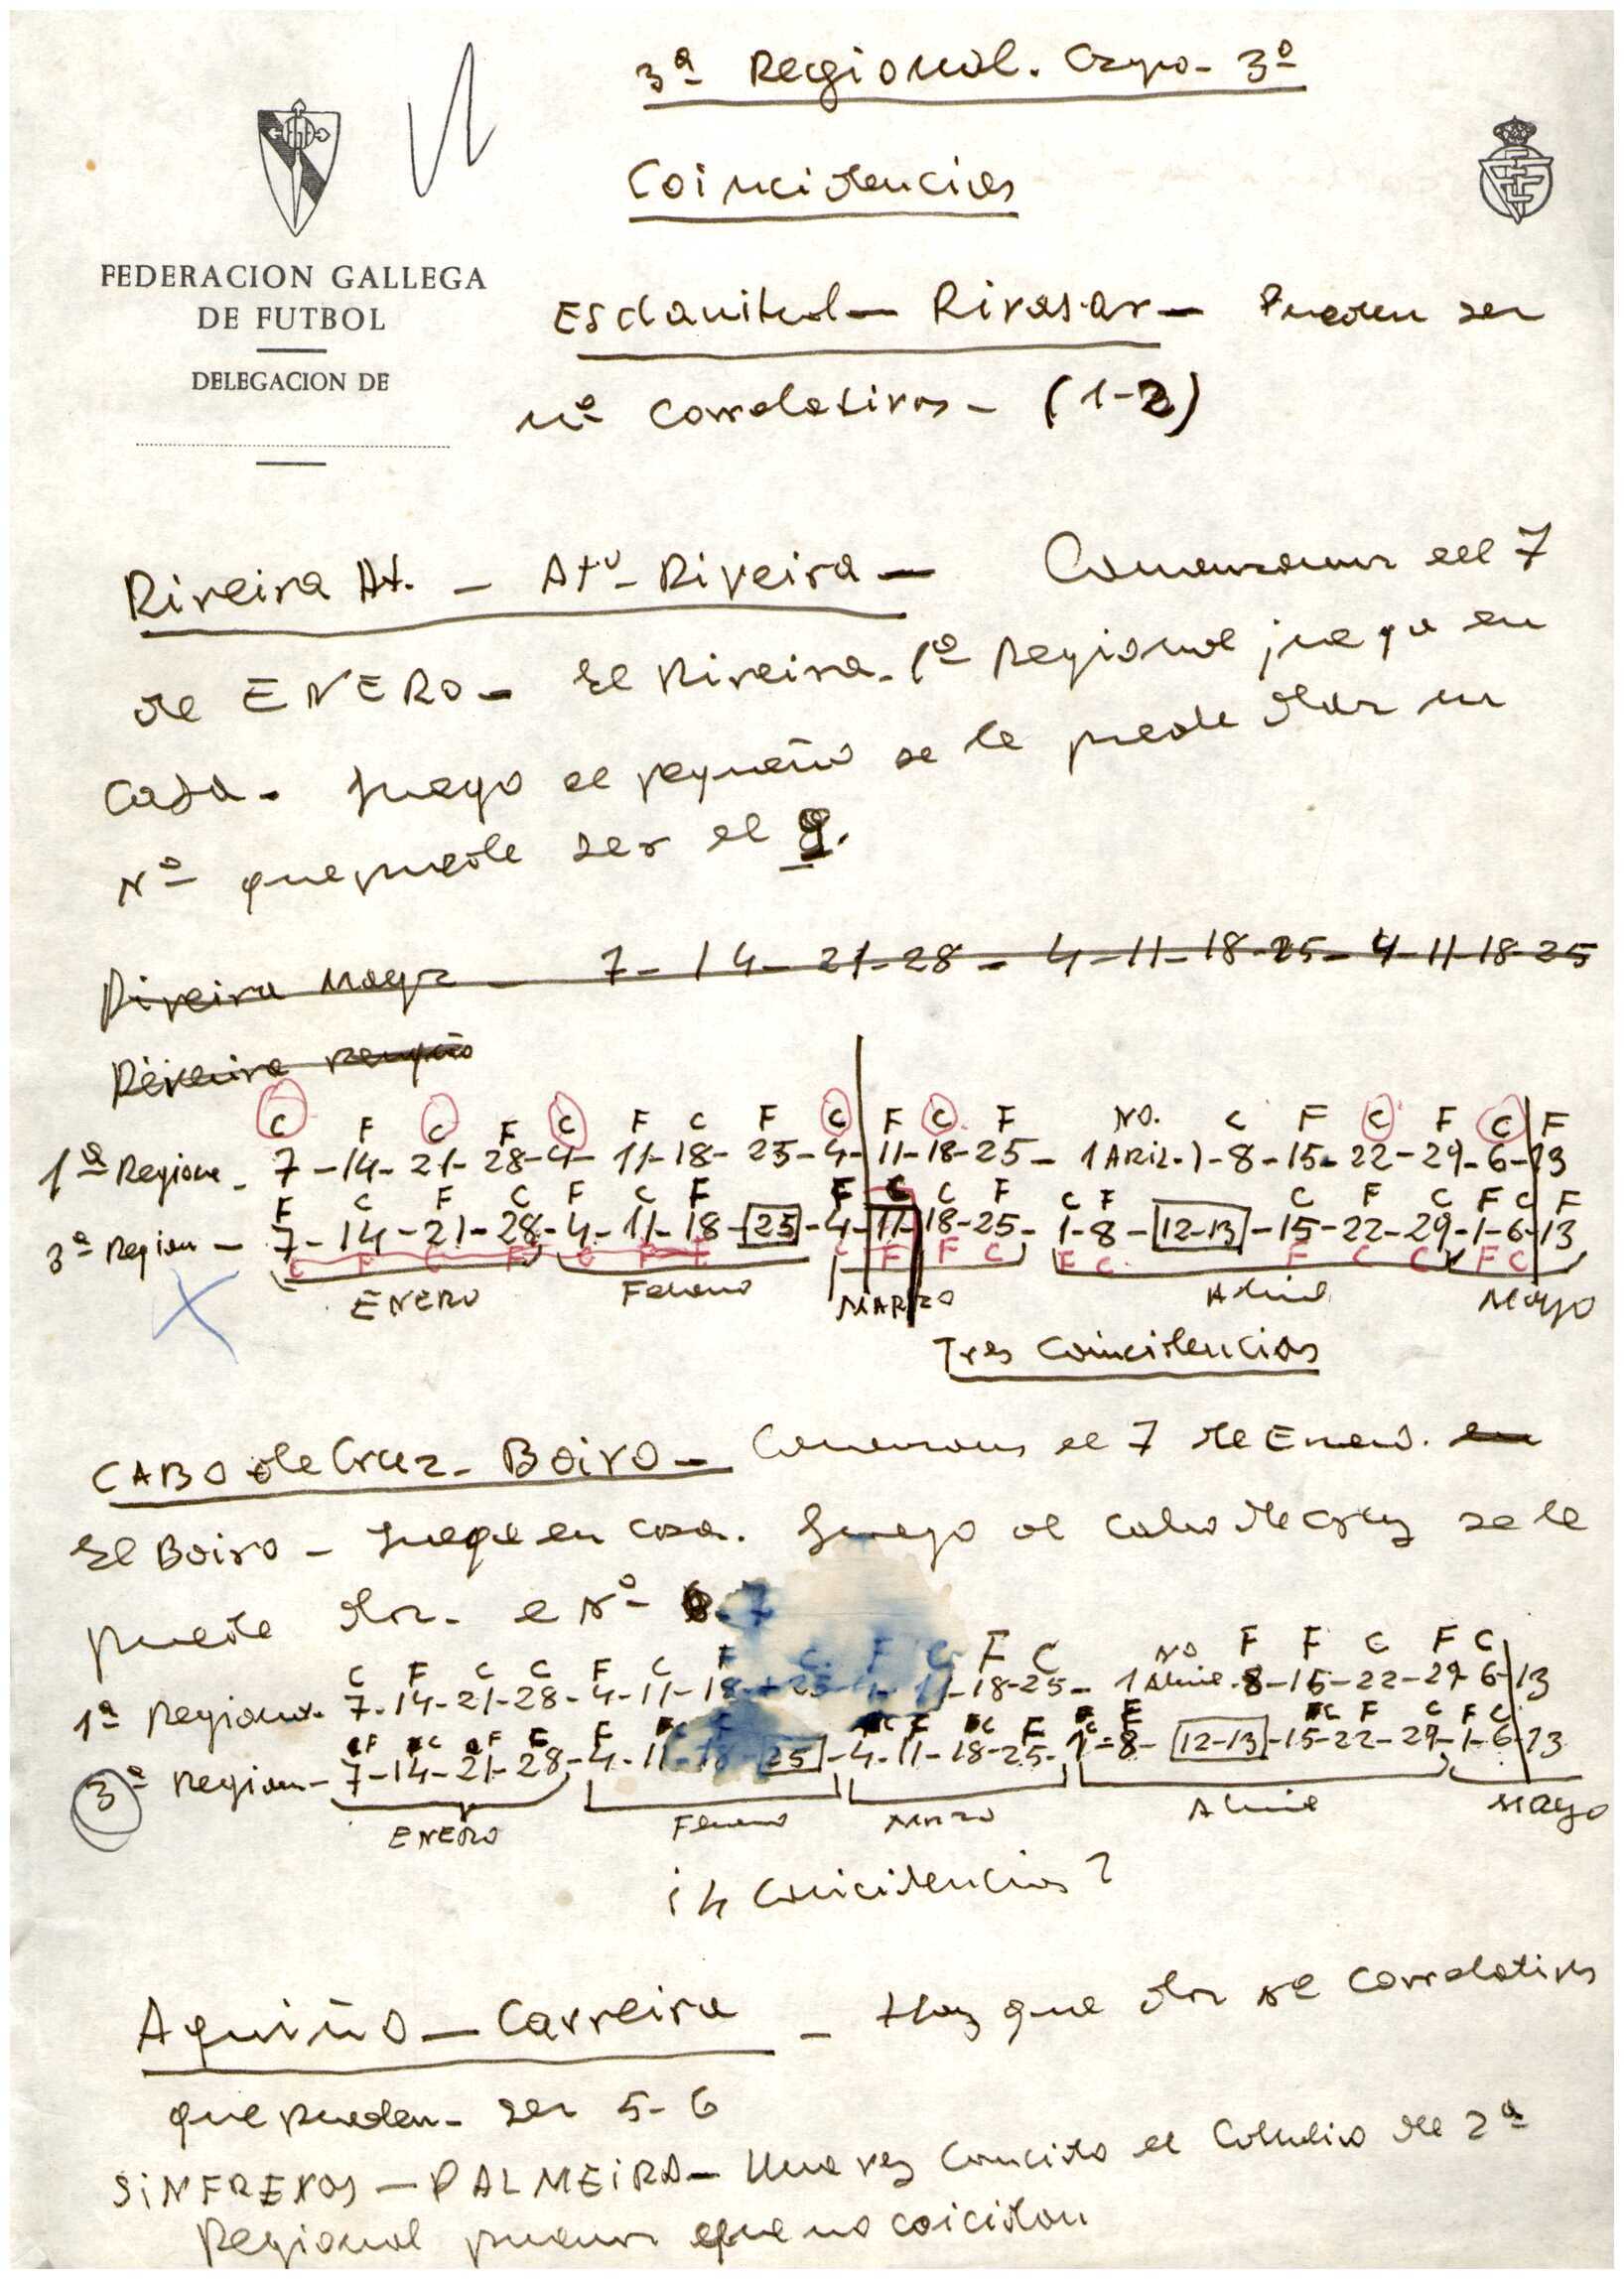 3ª Regional. Grupo- 3º
Coincidencias
FEDERACION GALLEGA
DE FUTBOL
DELEGACION DE
Esclavitud - Rivasar - Pueden ser
nº Correlativos - (1-2)
Riveira At. - Atº- Riveira - Comenzamos el 7
de ENERO - El Riveira. 1ª Regional juega en
Casa. Luego el pequeño se le puede dar un
Nº que puede ser el 9.
Riveira Mayor - 7 - 14 - 21 - 28 - 4 - 11 - 18 - 25 - 4 - 11 - 18 - 25
Riveira Pequeño
C F C F C F C F C F C F NO. C F C F C F
1ª Regional - 7 - 14 - 21 - 28 - 4 - 11 - 18 - 25 - 4 - 11 - 18 - 25 - 1 ABRIL - 8 - 15 - 22 - 29 - 6 - 13
F C F C F C F F C C F C F C F C F C F
3ª Region - 7 - 14 - 21 - 28 - 4 - 11 - 18 - 25 - 4 - 11 - 18 - 25 - 1 - 8 - 12-13 - 15 - 22 - 29 - 1 - 6 - 13
C F C F C F F C F F C F C F C C F C
ENERO Febrero MARZO Abril Mayo
Tres Coincidencias
CABO de Cruz - Boiro - Comenzamos el 7 de Enero. en
El Boiro - Juega en casa. Luego al Cabo de Cruz se le
puede dar - el Nº 7
C F C C F C F C F C F C NO F F C F C
1ª Regional - 7 - 14 - 21 - 28 - 4 - 11 - 18 - 25 - 4 - 11 - 18 - 25 - 1 Abril - 8 - 15 - 22 - 29 - 6 - 13
F C F F F C F C F C F C F C F C F C
3ª Region - 7 - 14 - 21 - 28 - 4 - 11 - 18 - 25 - 4 - 11 - 18 - 25 - 1 - 8 - 12-13 - 15 - 22 - 29 - 1 - 6 - 13
ENERO Febrero Marzo Abril Mayo
¿4 Coincidencias?
Aguiño - Carreira - Hay que dar nº Correlativos
que pueden - ser 5 - 6
SINFREXOS - PALMEIRA - Una vez conocido el Calendario de 2ª
Regional que no coincidan